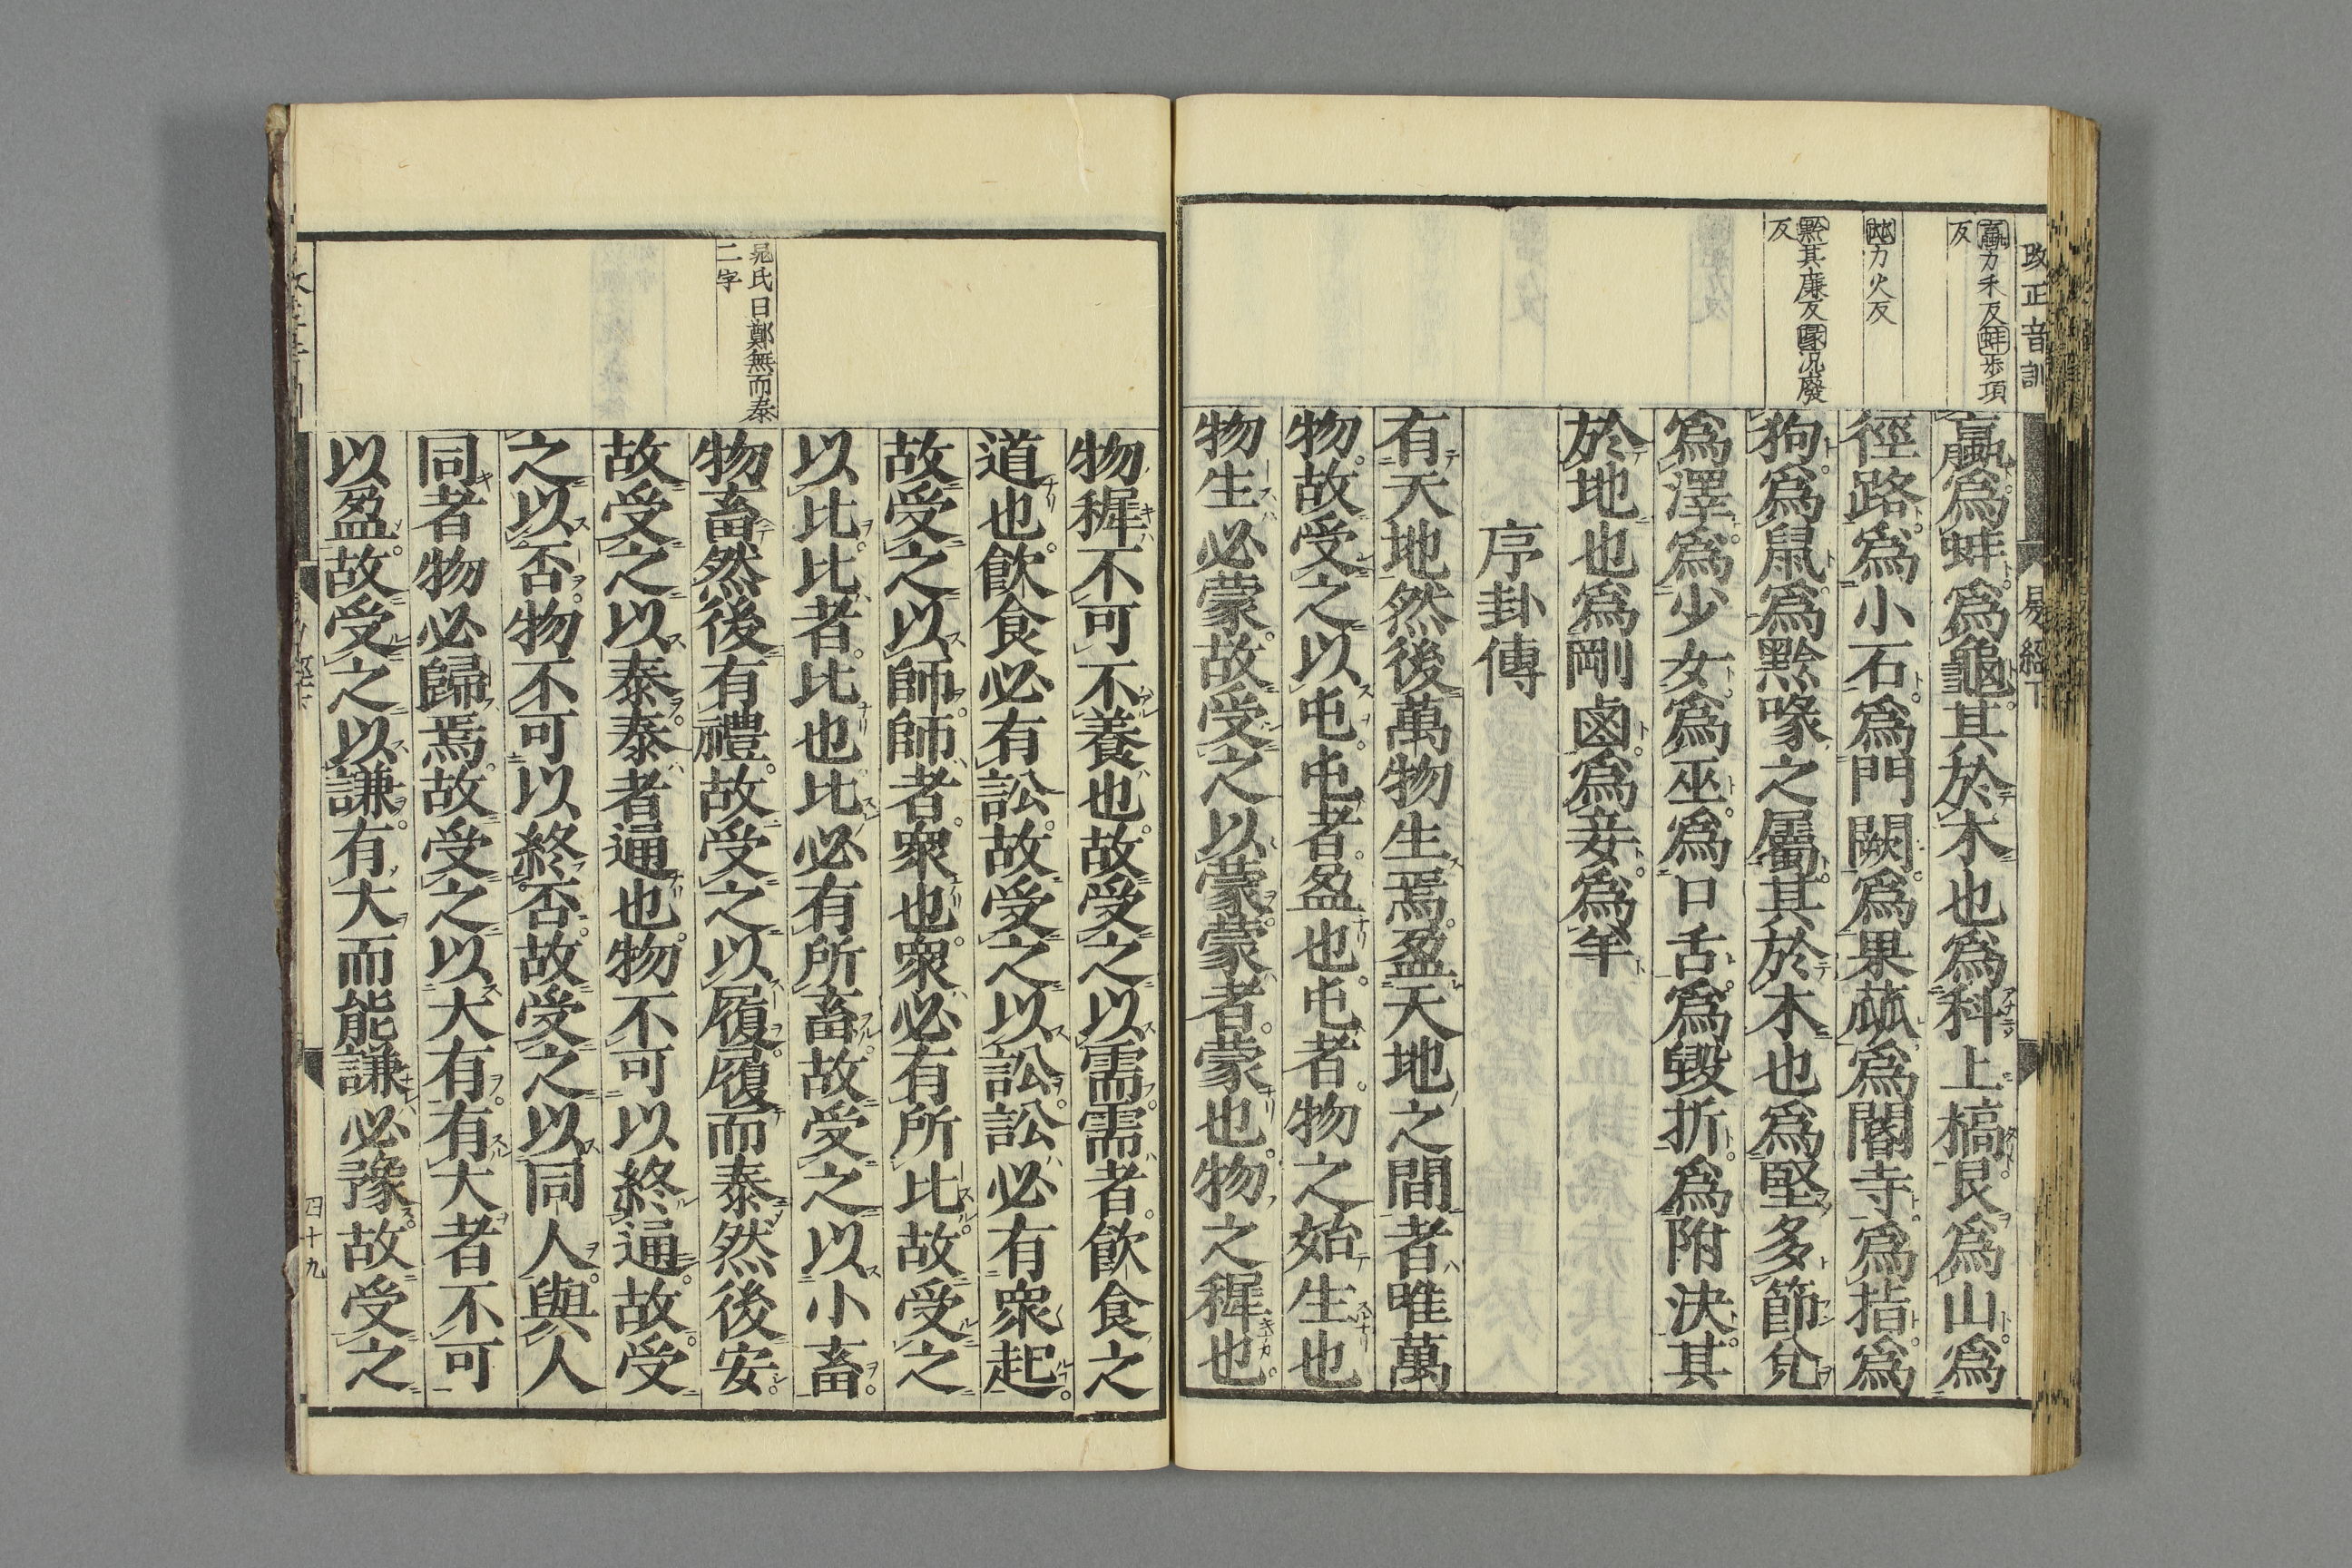 改正音訓
易經下
蠃力禾反蚌步項
反
蓏力火反
黔其廉反喙況廢
反
蠃爲蚌爲龜其於木也爲科上槁艮爲山爲
徑路爲小石爲門闕爲果蓏爲閽寺爲指爲
狗爲鼠爲黔喙之屬其於木也爲堅多節兌
爲澤爲少女爲巫爲口舌爲毀折爲附決其
於地也爲剛鹵爲妾爲羊
序卦傳
有天地然後萬物生焉盈天地之間者唯萬
物故受之以屯屯者盈也屯者物之始生也
物生必蒙故受之以蒙蒙者蒙也物之穉也
晁氏曰鄭無而泰
二字
物穉不可不養也故受之以需需者飲食之
道也飲食必有訟故受之以訟訟必有衆起
故受之以師師者衆也衆必有所比故受之
以比比者比也比必有所畜故受之以小畜
物畜然後有禮故受之以履履而泰然後安
故受之以泰泰者通也物不可以終通故受
之以否物不可以終否故受之以同人與人
同者物必歸焉故受之以大有有大者不可
以盈故受之以謙有大而能謙必豫故受之
四十九